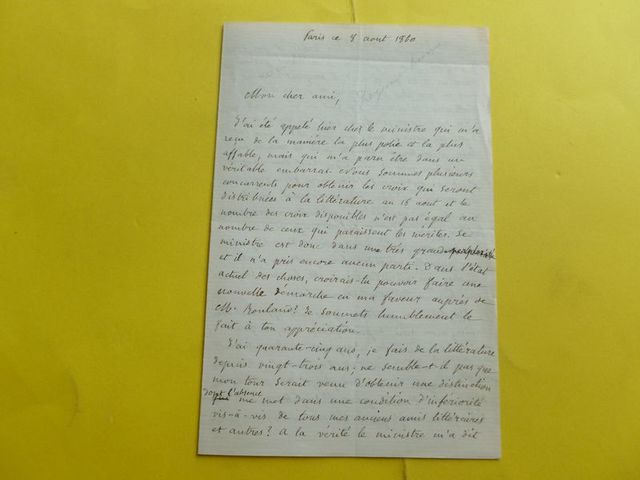 Paris ce 8 aout 1860
Mon cher ami,
J'ai été appelé hier chez le ministre qui m'a
reçu de la manière la plus polie et la plus
affable, mais qui m'a paru être dans un
véritable embarras. Nous sommes plusieurs
concurrents pour obtenir les croix qui seront
distribuées à la littérature au 15 aout et le
nombre des croix disponibles n'est pas égal au
nombre de ceux qui paraissent les mériter. Le
ministre est donc dans une très grande perplexité
et il n'a pris encore aucun parti. Dans l'état
actuel des choses, croirais-tu pouvoir faire une
nouvelle démarche en ma faveur auprès de
M. Rouland? Je soumets humblement le
fait à ton appréciation.
J'ai quarante-cinq ans, je fais de la littérature
depuis vingt-trois ans; ne semble-t-il pas que
mon tour serait venu d'obtenir une distinction
dont l'absence
me met dans une condition d'infériorité
vis-à-vis de tous mes anciens amis littéraires
et autres? A la vérité le ministre m'a dit